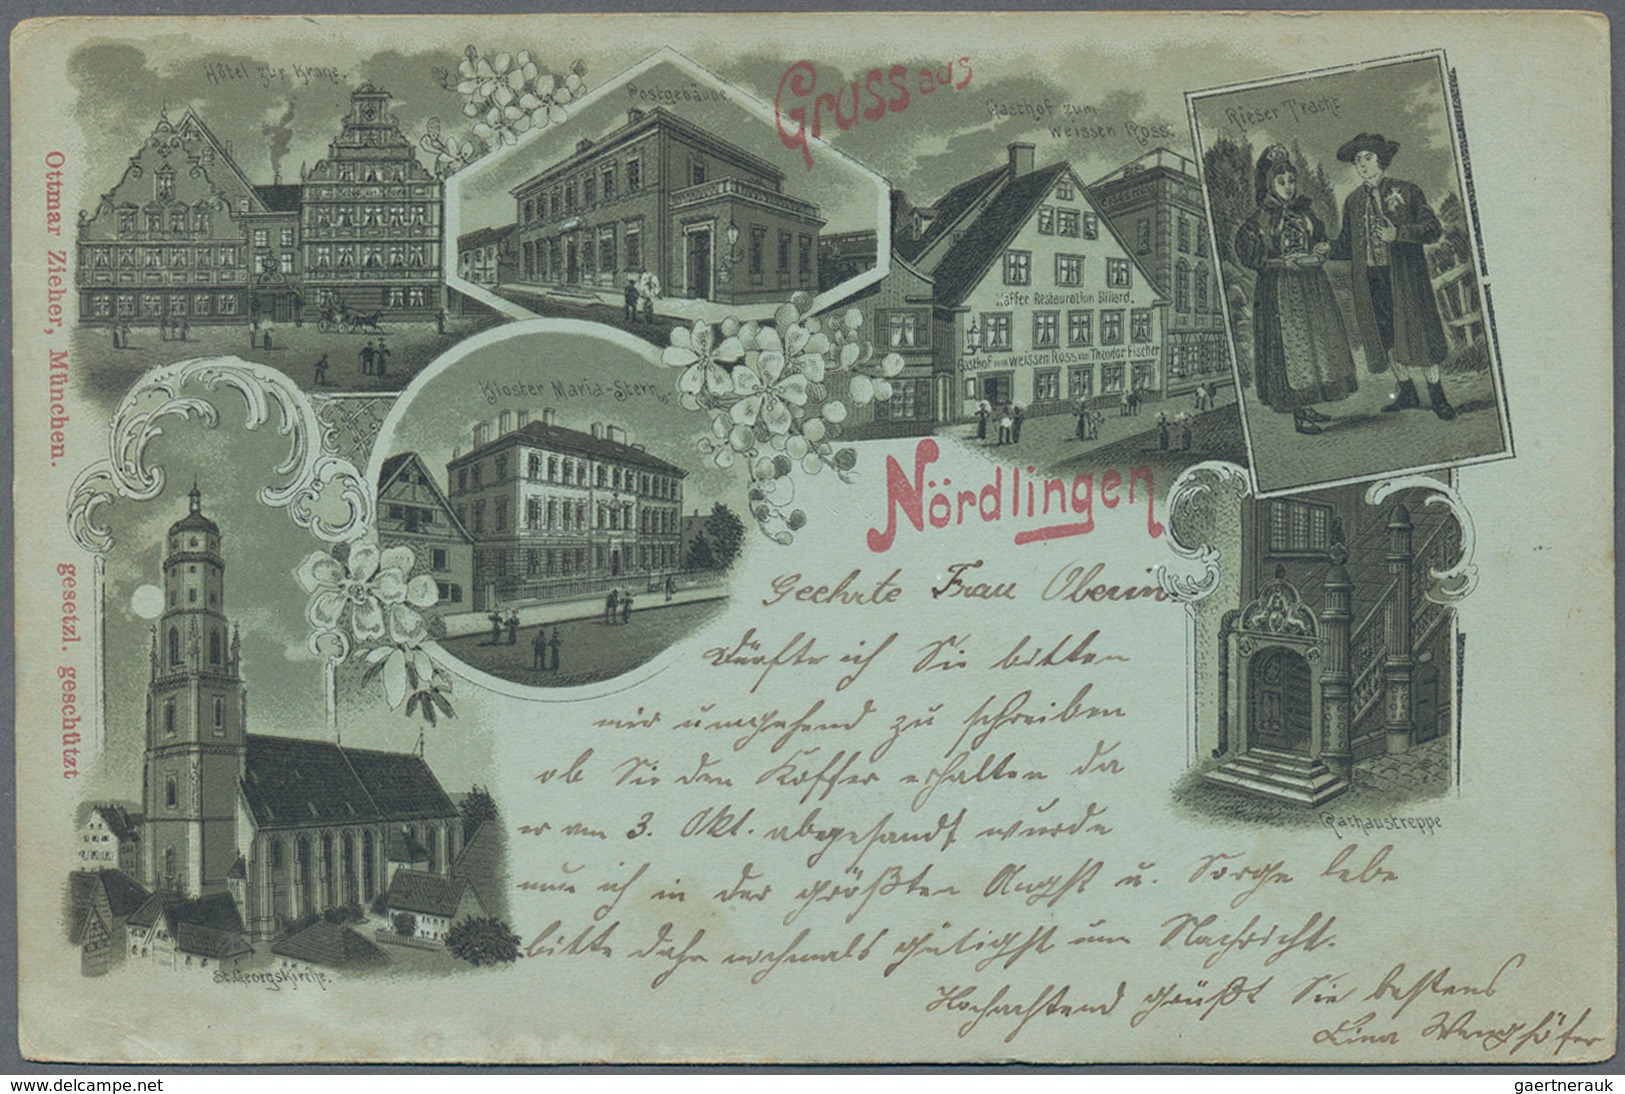 Hôtel zur Krone.
Postgebäude.
Gruss aus
Gasthof zum
weissen Ross.
Rieser Tracht
Kaffee Restauration Billard.
Gasthof zum weissen Ross von Theodor Fischer
Kloster Maria-Stern.
Nördlingen
Ottmar Zieher, München.
gesetzl. geschützt
St. Georgskirche.
Rathaustreppe
Geehrte Frau Oberin.
Dürfte ich Sie bitten
mir umgehend zu schreiben
ob Sie den Koffer erhalten da
er am 3. Okt. abgesandt wurde
nun ich in der größten Angst u. Sorge lebe
bitte daher nochmals gütigst um Nachricht.
Hochachtend grüßt Sie bestens
Lina
www.delcampe.net
gaertnerauk